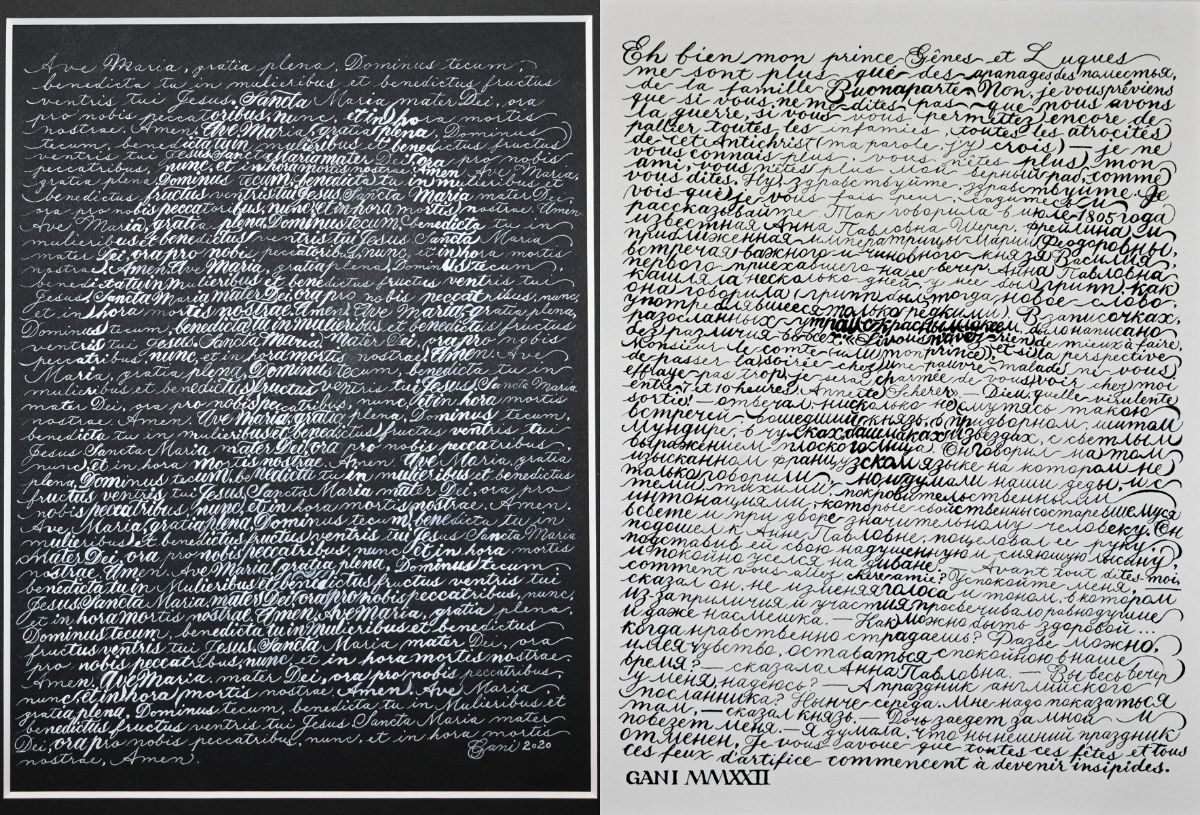 Ave Maria, gratia plena, Dominus tecum,
benedicta tu in mulieribus et benedictus fructus
ventris tui Jesus. Sancta Maria mater Dei, ora
pro nobis peccatoribus, nunc, et in hora mortis
nostrae. Amen. Ave Maria, gratia plena, Dominus
tecum, benedicta tu in mulieribus et benedictus fructus
ventris tui Jesus Sancta Maria mater Dei, ora pro nobis
peccatribus, nunc, et in hora mortis nostrae Amen Ave Maria,
gratia plena, Dominus tecum, benedicta tu in mulieribus et
benedictus fructus ventris tui Jesus Sancta Maria mater Dei,
ora pro nobis peccatoribus, nunc, et in hora mortis nostrae. Amen
Ave Maria, gratia plena, Dominus tecum, benedicta tu in
mulieribus et benedictus ventris tui Jesus Sancta Maria
mater Dei, ora pro nobis peccatoribus, nunc et in hora mortis
nostrae. Amen. Ave Maria, gratia plena, Dominus tecum,
benedicta tu in mulieribus et benedictus fructus ventris tui
Jesus, Sancta Maria mater Dei, ora pro nobis peccatribus, nunc,
et in hora mortis nostrae. Amen. Ave Maria, gratia plena,
Dominus tecum, benedicta tu in mulieribus et benedictus fructus
ventris tui Jesus. Sancta Maria mater Dei, ora pro nobis
peccatribus, nunc, et in hora mortis nostrae, Amen. Ave
Maria, gratia plena, Dominus tecum, benedicta tu in
mulieribus et benedictus fructus ventris tui Jesus, Sancta Maria
mater Dei, ora pro nobis peccatribus, nunc, et in hora mortis
nostrae. Amen. Ave Maria, gratia plena, Dominus tecum,
benedicta tu in mulieribus et benedictus fructus ventris tui
Jesus Sancta Maria mater Dei, ora pro nobis peccatribus
nunc, et in hora mortis nostrae. Amen. Ave Maria, gratia
plena, Dominus tecum, benedicta tu in mulieribus et benedictus
fructus ventris tui Jesus, Sancta Maria mater Dei, ora pro
nobis peccatribus, nunc, et in hora mortis nostrae. Amen.
Ave Maria, gratia plena, Dominus tecum, benedicta tu in
mulieribus et benedictus fructus ventris tui Jesus Sancta Maria
Mater Dei, ora pro nobis peccatribus, nunc et in hora mortis
nostrae. Amen. Ave Maria, gratia plena, Dominus tecum,
benedicta tu in Mulieribus et benedictus fructus ventris tui
Jesus Sancta Maria, mater Dei, ora pro nobis peccatribus, nunc,
et in hora mortis nostrae, Amen. Ave Maria, gratia plena,
Dominus tecum, benedicta tu in Mulieribus et benedictus
fructus ventris tui Jesus. Sancta Maria mater Dei, ora
pro nobis peccatribus, nunc et in hora mortis nostrae.
Amen. Ave Maria. mater Dei, ora pro nobis peccatribus,
nunc, et in hora mortis nostrae. Amen. Ave Maria
gratia plena, Dominus tecum, benedicta tu in Mulieribus et
benedictus fructus ventris tui Jesus Sancta Maria mater
Dei, ora pro nobis peccatribus, nunc, et in hora mortis
nostrae, Amen.
Gani 2020
Eh bien mon prince Gênes et Luques
me sont plus que des apanages des поместья,
de la famille Buonaparte. Non, je vous préviens
que si vous ne me dites pas que nous avons
la guerre, si vous vous permettez encore de
pallier toutes les infamies, toutes les atrocités
de cet Antichrist (ma parole, j'y crois) — je ne
vous connais plus, vous n'êtes plus), mon
ami vous n'êtes plus мой верный раб, comme
vous dites. Ну, здравствуйте, здравствуйте. Je
vois que je vous fais peur, садитесь и
рассказывайте. Так говорила в июле 1805 года
известная Анна Павловна Шерер, фрейлина и
приближенная императрицы Марии Феодоровны,
встречая важного и чиновного князя Василия,
первого приехавшего на ее вечер. Анна Павловна
кашляла несколько дней, у нее был грипп, как
она говорила (грипп был тогда новое слово,
употреблявшееся только редкими). В записочках,
разосланных утром с красным лакеем, было написано
без различия во всех: «Si vous n'avez rien de mieux à faire,
Monsieur le comte (или mon prince), et si la perspective
de passer la soirée chez une pauvre malade ne vous
effraye pas trop, je serai charmée de vous voir chez moi
entre 7 et 10 heures. Annette Scherer». — Dieu, quelle virulente
sortie! — отвечал, нисколько не смутясь такою
встречей, вошедший князь, в придворном, шитом
мундире, в чулках, башмаках и звездах, с светлым
выражением плоского лица. Он говорил на том
изысканном французском языке на котором не
только говорили, но и думали наши деды, и с
теми тихими, покровительственными
интонациями, которые свойственны состаревшемуся
в свете и при дворе значительному человеку. Он
подошел к Анне Павловне, поцеловал ее руку,
подставив ей свою надушенную и сияющую лысину,
и покойно уселся на диване. — Avant tout dites-moi,
comment vous allez, chère amie? Успокойте меня, —
сказал он, не изменяя голоса и тоном, в котором
из-за приличия и участия просвечивало равнодушие
и даже насмешка. — Как можно быть здоровой...
когда нравственно страдаешь? Разве можно,
имея чувство, оставаться спокойною в наше
время? — сказала Анна Павловна. — Вы весь вечер
у меня, надеюсь? — А праздник английского
посланника? Нынче середа. Мне надо показаться
там, — сказал князь. — Дочь заедет за мной и
повезет меня. — Я думала, что нынешний праздник
отменен, Je vous avoue que toutes ces fêtes et tous
ces feux d'artifice commencent à devenir insipides.
GANI MMXXII